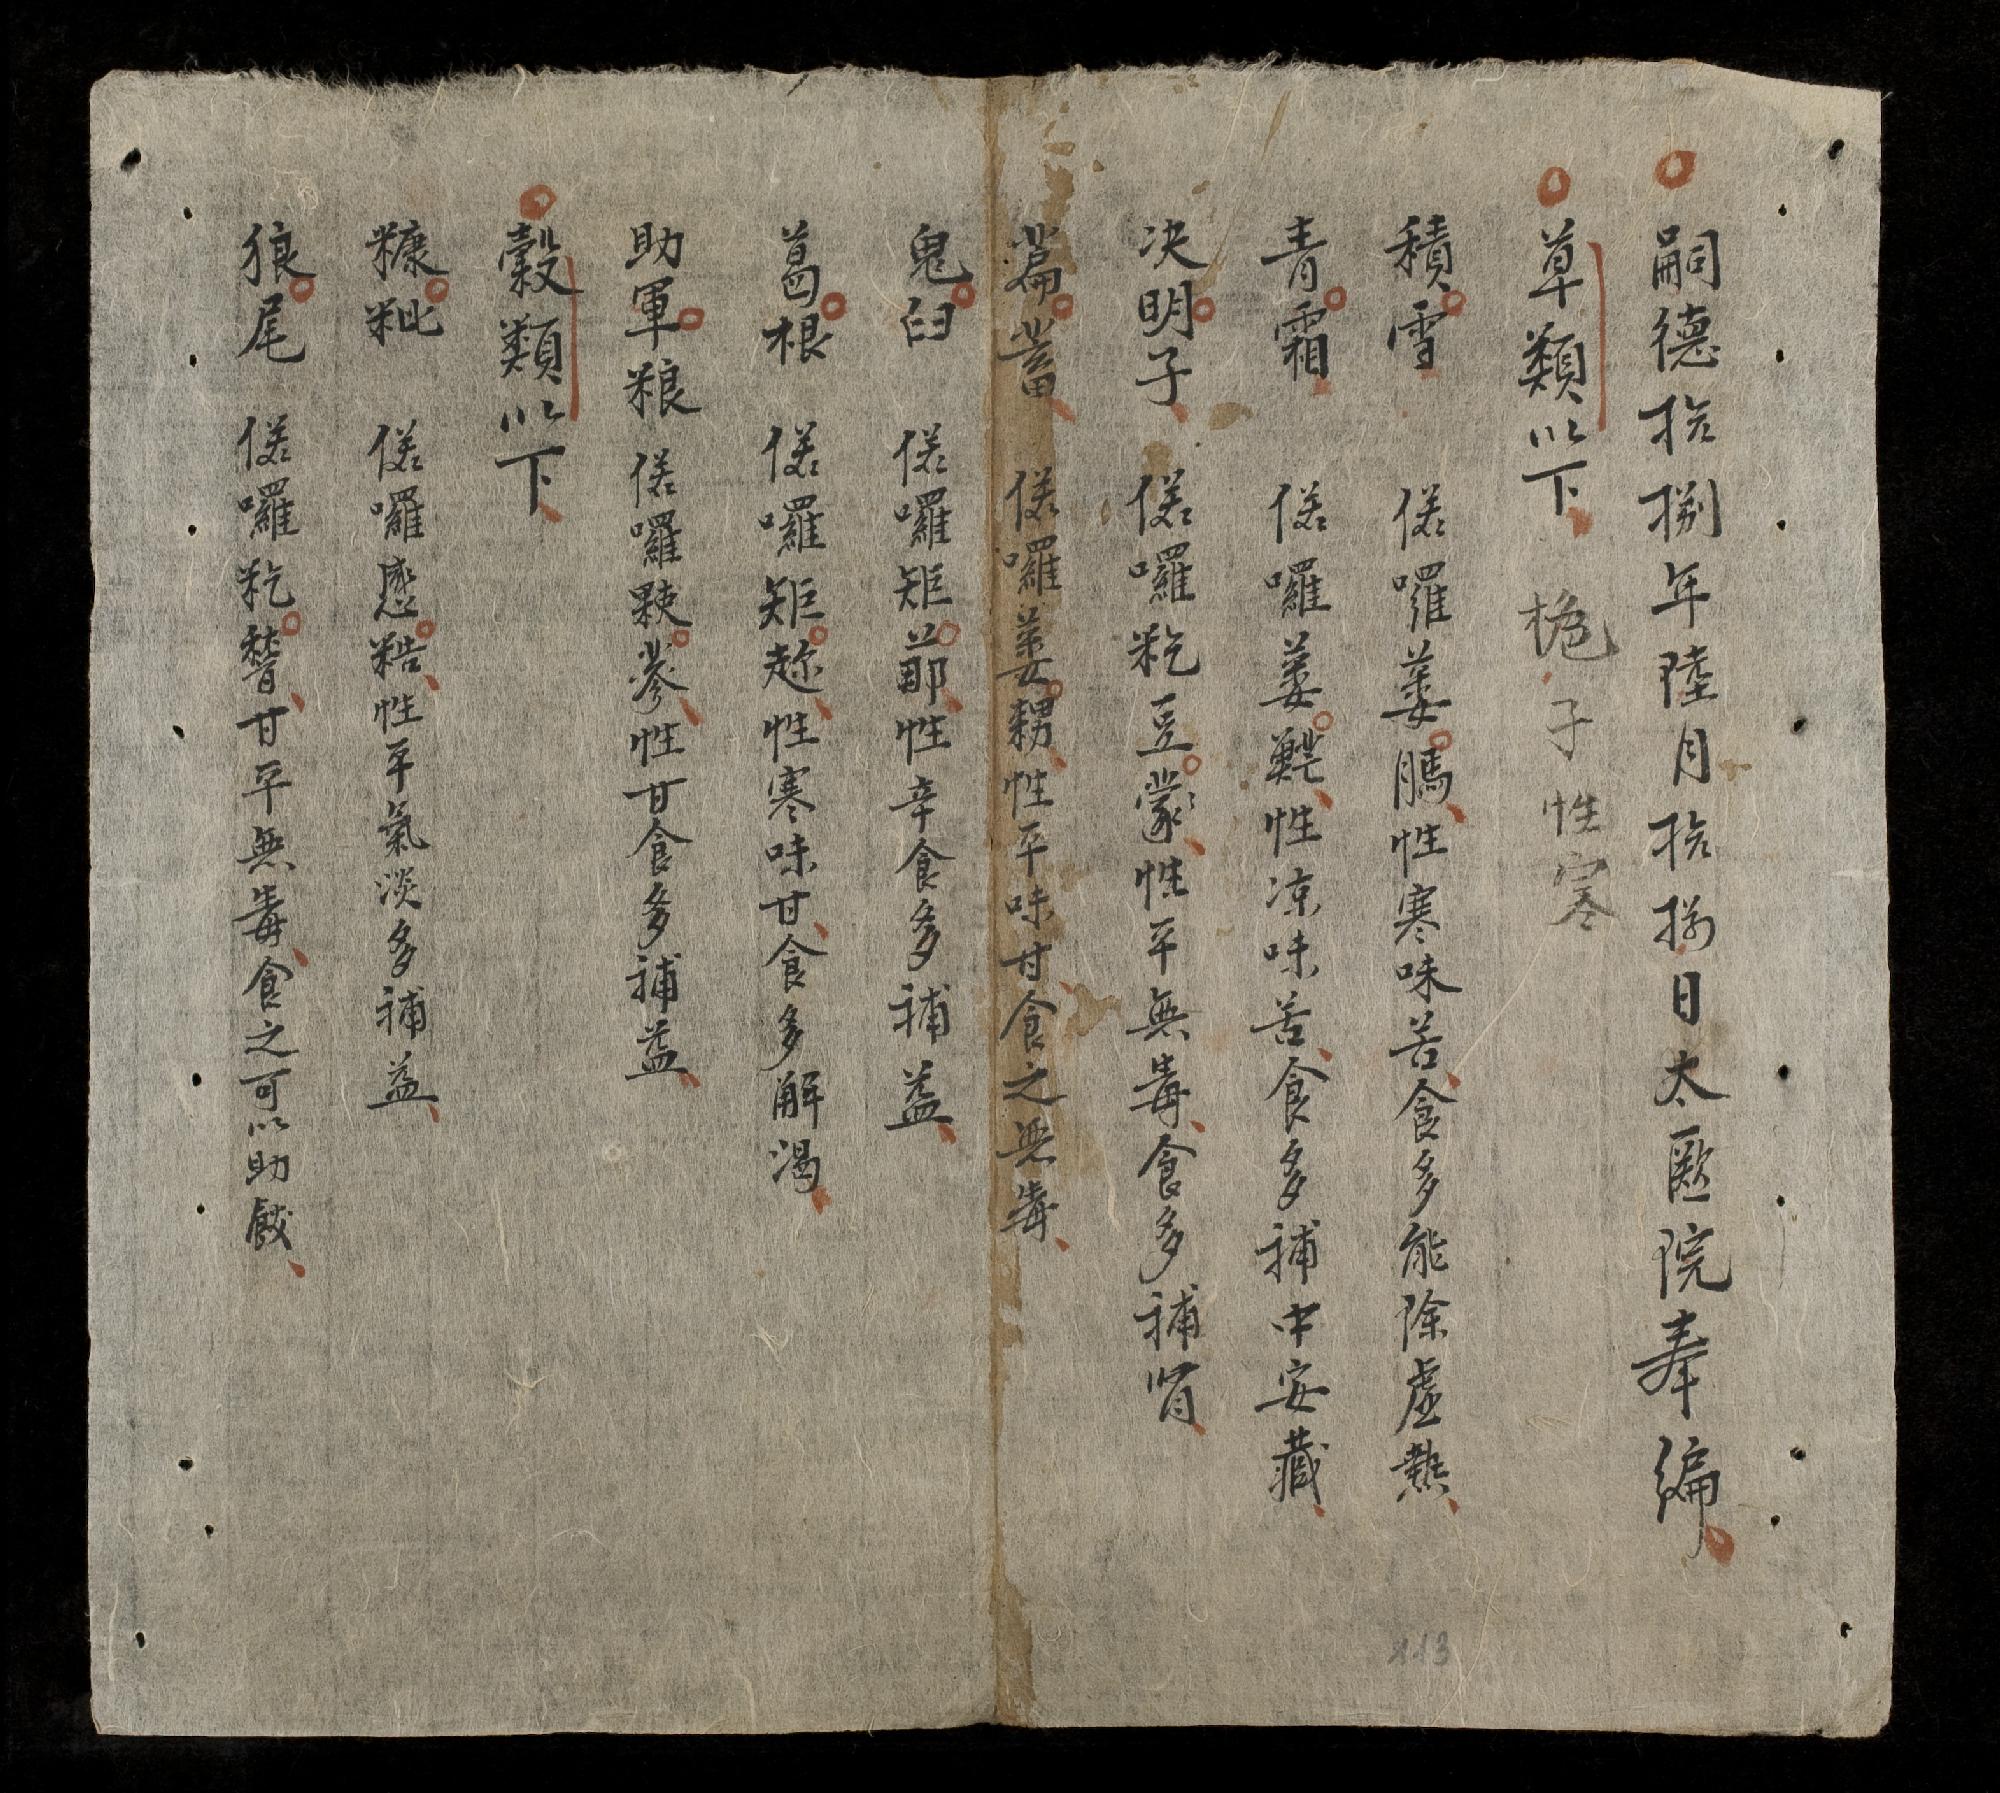 嗣德拾捌年陸月拾捌日太醫院奉編
草類以下 梔子性寒
積雪 偌囉蔞䐁性寒味苦食多能除虛熱
青霜 偌囉蔞性凉味苦食多補中安藏
决明子 偌囉籺豆蒙性平無毒食多補腎
萹蓄 偌囉蔞䎛性平味甘食之無毒
鬼臼 偌囉矩𦰤性辛食多補益
葛根 偌囉矩性寒味甘食多解渴
助軍粮 偌囉蔘性甘食多補益
穀類以下
糠粃 偌囉性平氣淡多補益
狼尾 偌囉籺甘平無毒食之可以助戲
113